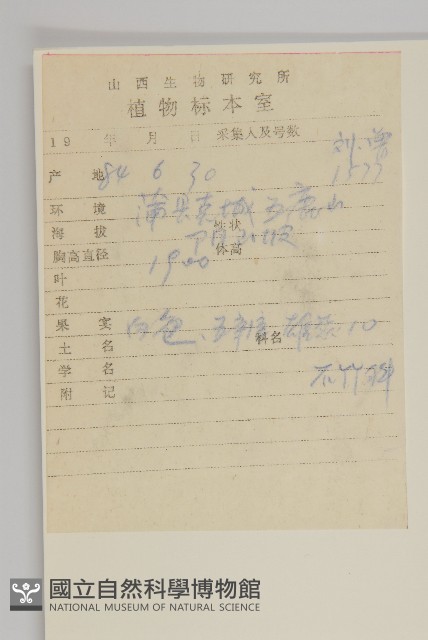 山西生物研究所
植物标本室
19 年 月 日 采集人及号数 刘
产地 84 6 30 1577
环境 蒲县克城五鹿山
海拔 性状 阴山坡
胸高直径 1900 体高
叶
花
果实 白色
土名 科名
学名 石竹科
附记
國立自然科學博物館
NATIONAL MUSEUM OF NATURAL SCIENCE